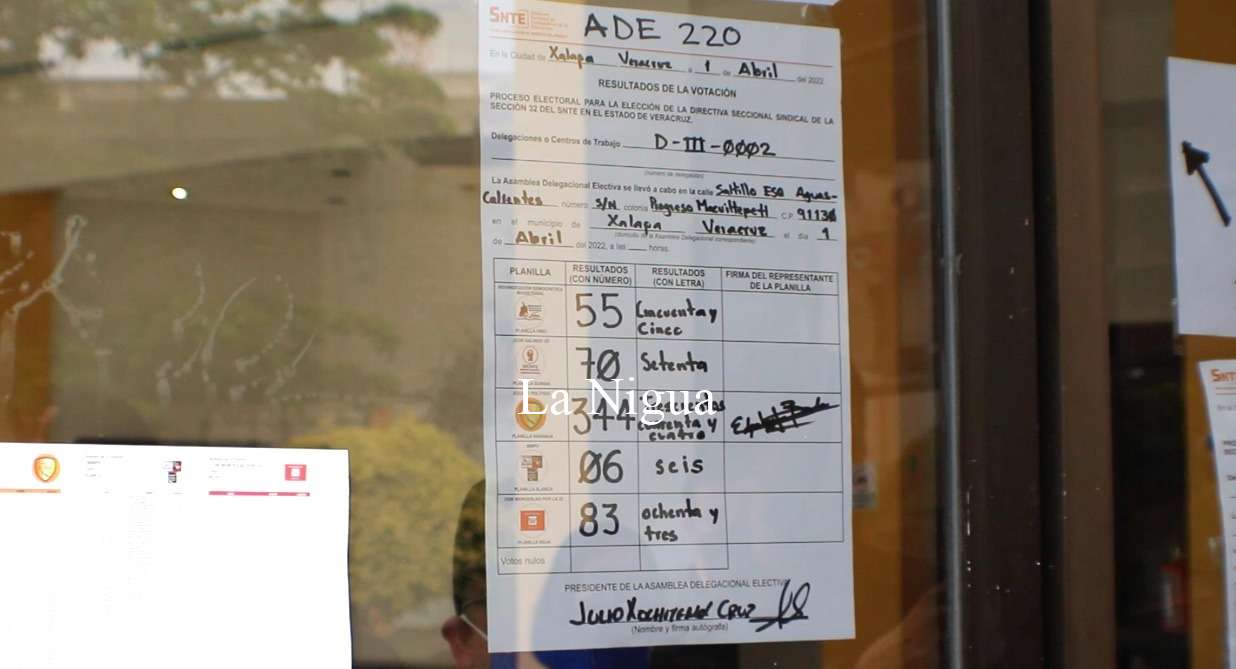 SNTE
ADE 220
En la Ciudad de Xalapa Veracruz a 1 de Abril del 2022
RESULTADOS DE LA VOTACIÓN
PROCESO ELECTORAL PARA LA ELECCIÓN DE LA DIRECTIVA SECCIONAL SINDICAL DE LA
SECCIÓN 32 DEL SNTE EN EL ESTADO DE VERACRUZ.
Delegaciones o Centros de Trabajo D-III-0002
(número de delegación)
La Asamblea Delegacional Electiva se llevó a cabo en la calle Saltillo ESQ Aguas-
Calientes número S/N colonia Progreso Macuiltepetl C.P. 91130
en el municipio de Xalapa Veracruz el día 1
(domicilio de la Asamblea Delegacional correspondiente)
de Abril del 2022, a las horas.
PLANILLA RESULTADOS (CON NÚMERO) RESULTADOS (CON LETRA) FIRMA DEL REPRESENTANTE DE LA PLANILLA
55 Cincuenta y
Cinco
70 Setenta
PLANILLA GUINDA
344
cuarenta y
cuatro
La Nigua
PLANILLA NARANJA
06 seis
PLANILLA BLANCA
83 ochenta y
tres
Votos nulos
PRESIDENTE DE LA ASAMBLEA DELEGACIONAL ELECTIVA
JULIO XOCHITEMOL CRUZ
(Nombre y firma autógrafa)
SNTE